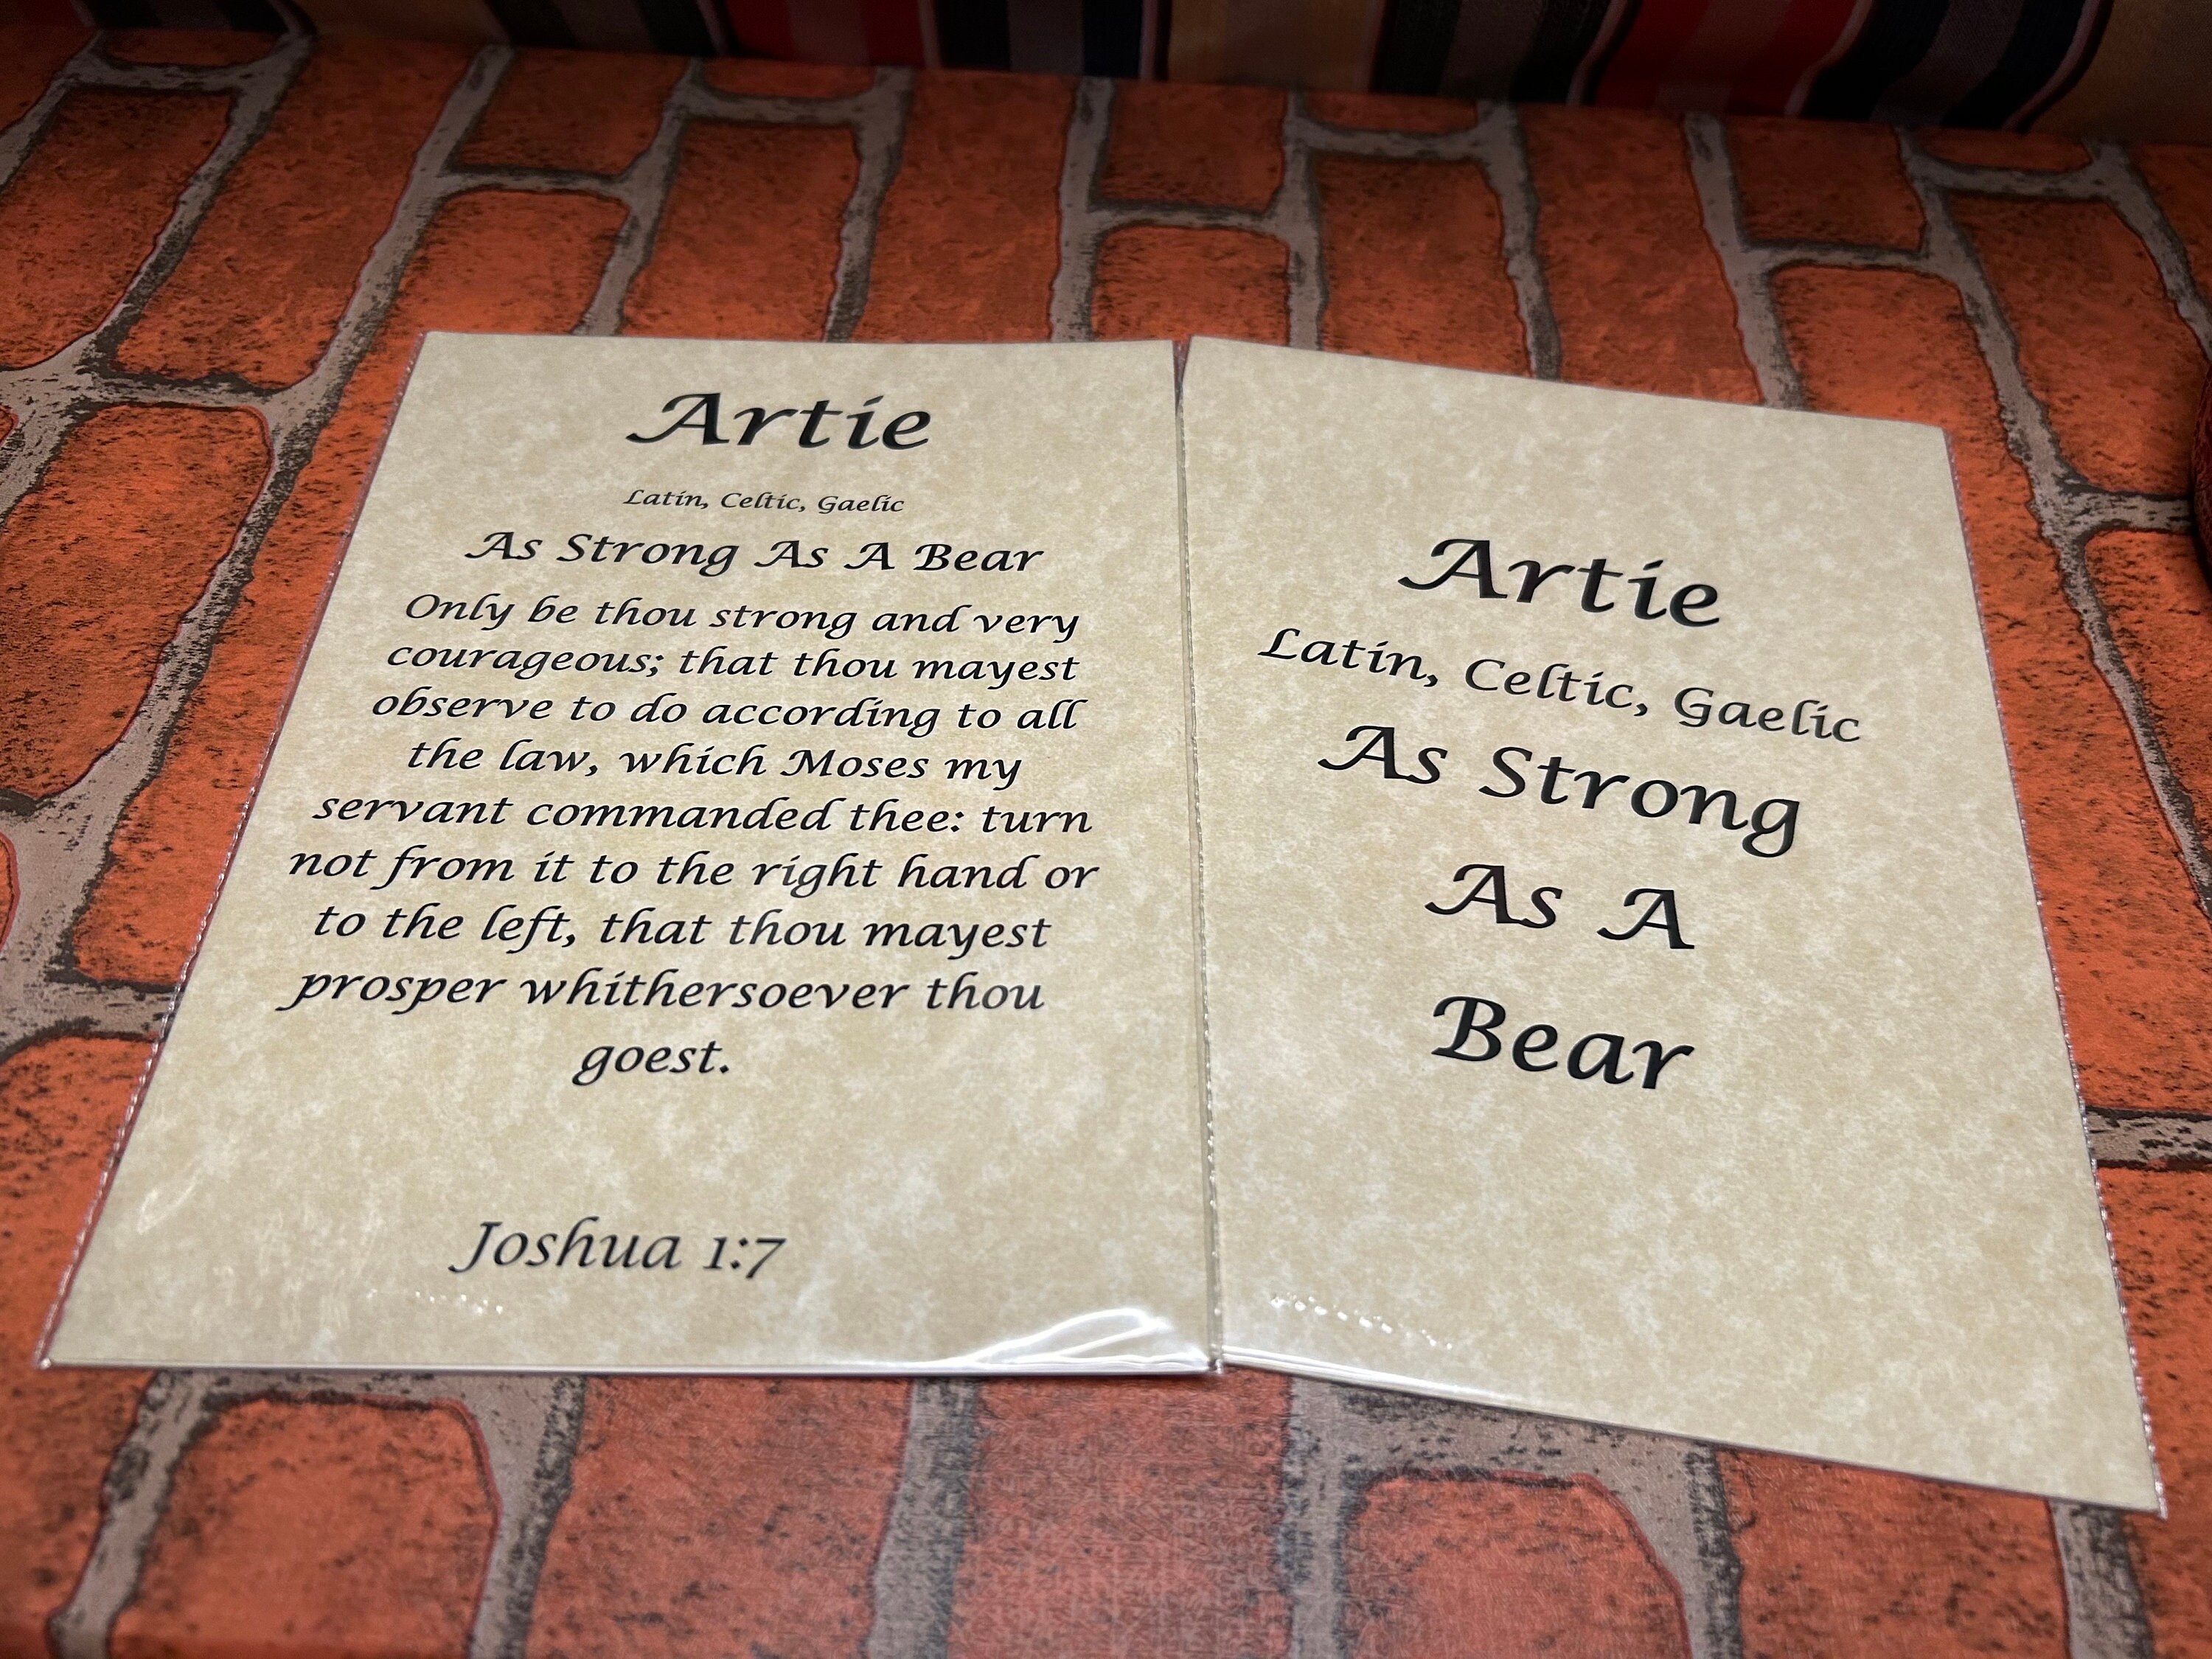 Artie
Latin, Celtic, Gaelic
As Strong As A Bear
Only be thou strong and very
courageous; that thou mayest
observe to do according to all
the law, which Moses my
servant commanded thee: turn
not from it to the right hand or
to the left, that thou mayest
prosper whithersoever thou
goest.
Joshua 1:7
Artie
Latin, Celtic, Gaelic
As Strong
As A
Bear